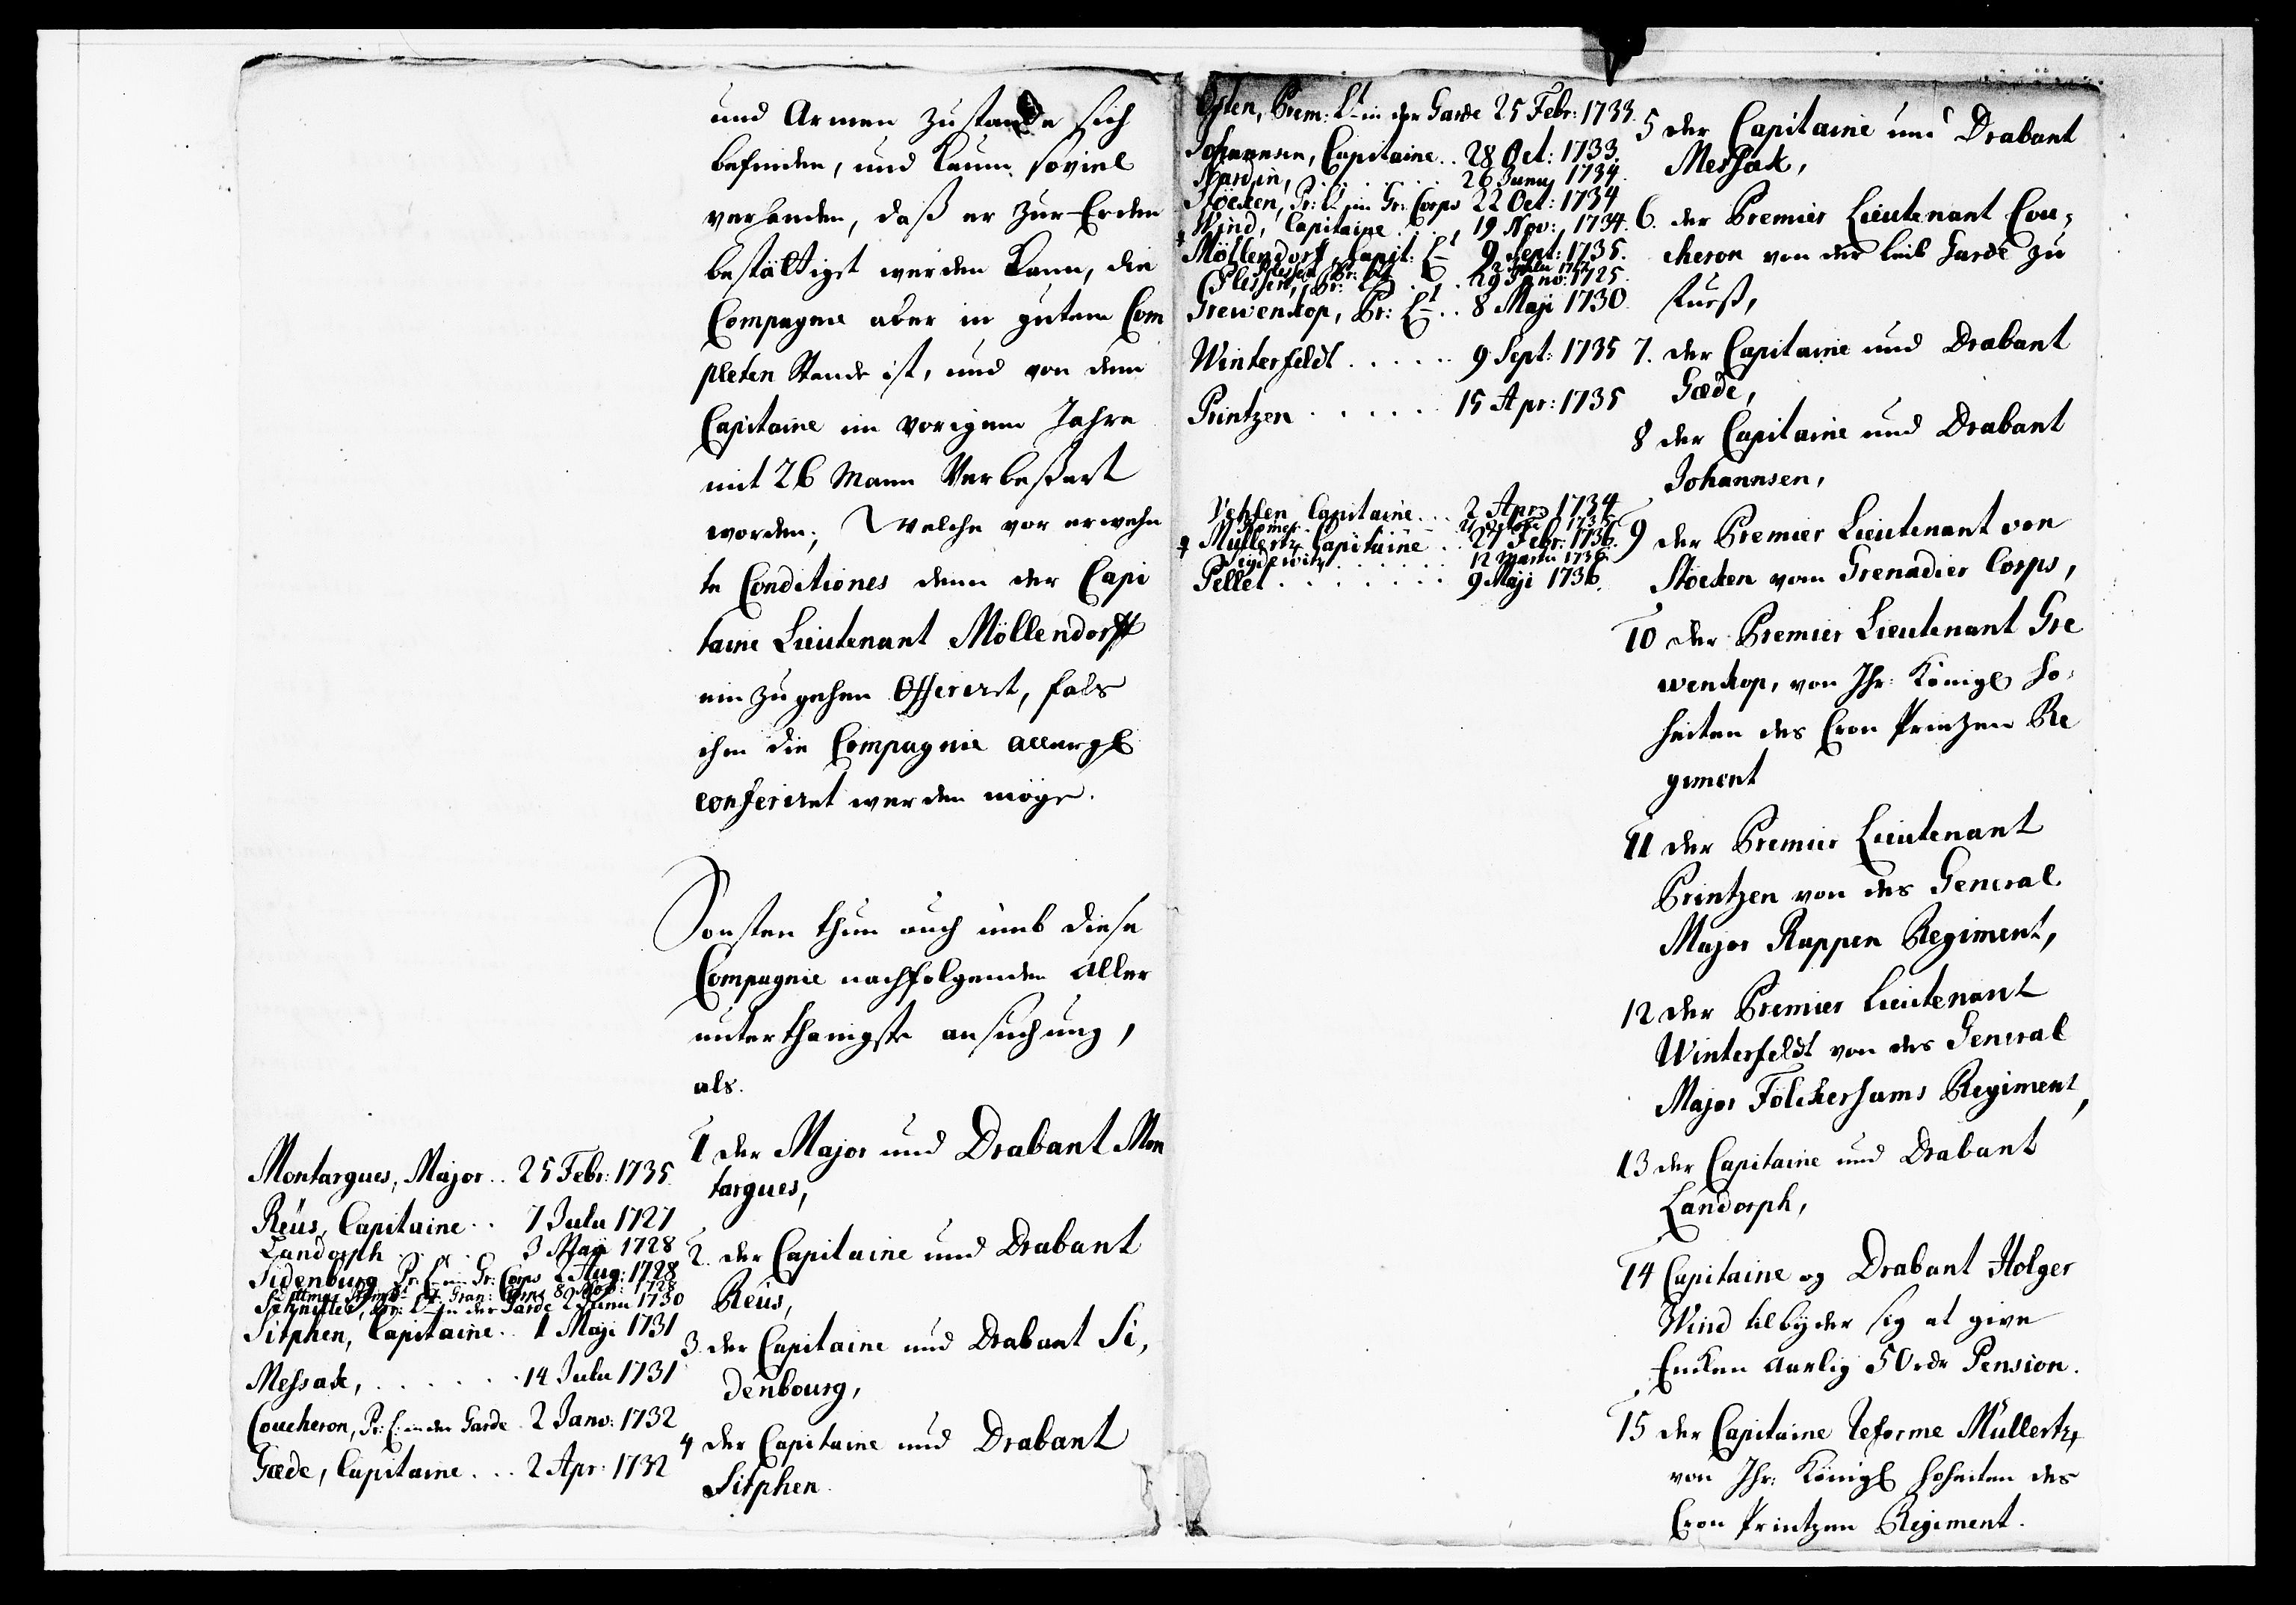 und Armen Zustande sich
befinden, und kaum soviel
verhanden, daß er zur Erden
bestättiget werden kann, die
Compagnie aber in gutem Com
pleten Stande ist, und von dem
Capitaine im vorigem Jahre
mit 26 Mann Verbeßert
worden; Welche vor erwehn
te Conditiones denn der Capi
taine Lieutenant Möllendorff
einzugehen Offeriret, fals
ihm die Compagnie allergl
conferiret werden möge.
Sonsten thun auch umb diese
Compagnie nachfolgenden aller
unterthänigste ansuchung,
als.
1 der Major und Drabant Mon
targues,
2. der Capitaine und Drabant
Reüs,
3. der Capitaine und Drabant Si,
denbourg,
4 der Capitaine und Drabant
Sitphen.
Montargues, Major .. 25 Febr: 1735
Reüs, Capitaine .. 7 Julii 1727
Landorph . . . 3 Maji 1728
Sidenburg Pr: Lt im Gr: Corps 2 Aug: 1728
Gran: Corps 8 Nov: 1728
Schnitler, Pr: Lt in der Garde 2 Junii 1730
Sitphen, Capitaine .. 1 Maji 1731
Messak, . . . . . . 14 Julii 1731
Coucheron, Pr: L: in der Garde 2 Janv: 1732
Gæde, Capitaine . . . 2 Apr: 1732
Osten, Prem: Lt in der Garde 25 Febr: 1733.
Johannsen, Capitaine .. 28 Oct: 1733.
Nardin, . . . . . . 26 Junij 1734.
Stöcken, Pr: Lt im Gr: Corps 22 Oct: 1734
Wind, Capitaine . . . 19 Nov: 1734.
Möllendorf, Capit: Lt 9 Sept: 1735.
Plessen, Pr: Lt . . . 29 Janv: 1725.
Grewenkop, Pr: Lt .. 8 Maji 1730.
Winterfeldt . . . . . 9 Sept: 1735
Printzen . . . . . 15 Apr: 1735
Capitaine . . . 2 Apr: 1734
Müllertz Capitaine .. 27 Febr: 1736.
12 Martii 1736.
Pellet . . . . . . . 9 Maji 1736.
5 der Capitaine und Drabant
Messak,
6. der Premier Lieutenant Cou,
cheron von der Leib Garde zu
Fueß,
7. der Capitaine und Drabant
Gæde,
8 der Capitaine und Drabant
Johannsen,
9 der Premier Lieutenant von
Stöcken vom Grenadier Corps,
10 der Premier Lieutenant Gre
wenkop, von Ihr: Königl Ho,
heiten des Cron Prinzen Re
giment
11 der Premier Lieutenant
Printzen von des General
Major Rappen Regiment,
12 der Premier Lieutenant
Winterfeldt von des General
Major Fölckersams Regiment,
13 der Capitaine und Drabant
Landorph,
14 Capitaine og Drabant Holger
Wind tilbyder sig at give
Encken aarlig 50 rdr Pension.
15 der Capitaine Reforme Müllertz
von Ihr: Königl Hoheiten des
Cron Printzen Regiment.